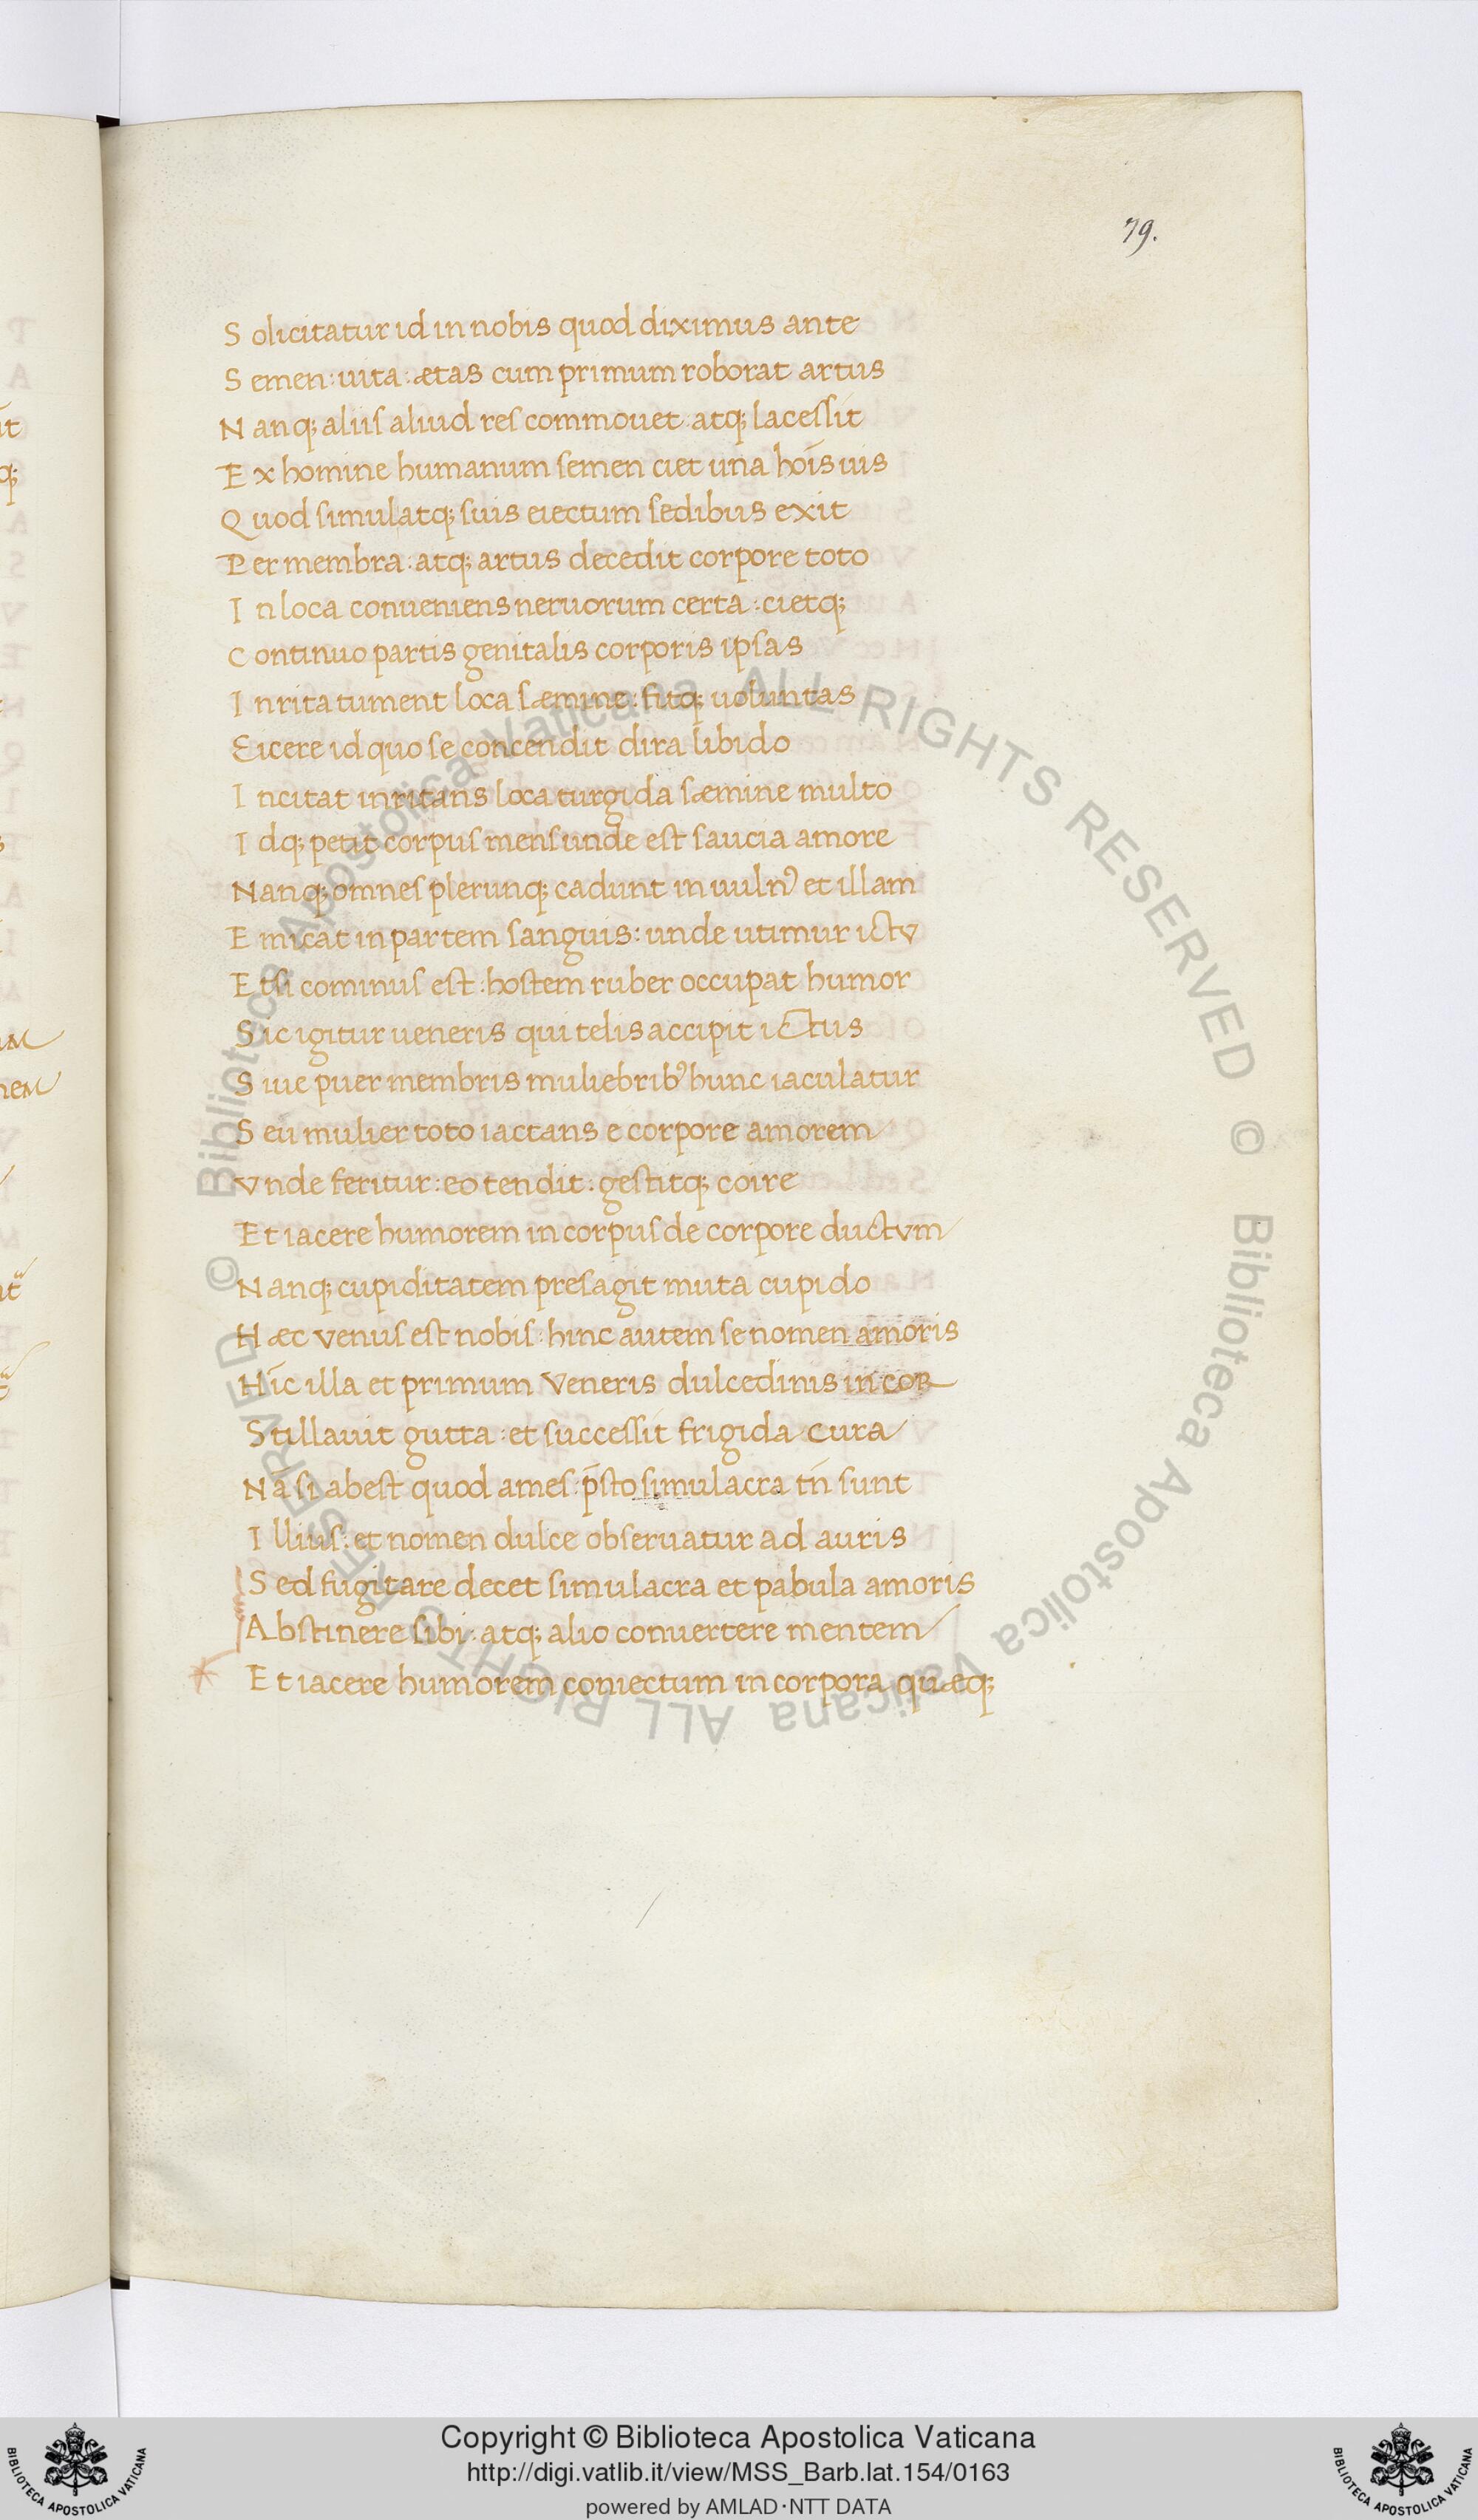 79.
Solicitatur id in nobis quod diximus ante
Semen: uita: ætas cum primum roborat artus
Nanq; aliis aliud res commouet: atq; lacessit
Ex homine humanum semen ciet una hoīs uis
Quod simulatq; suis eiectum sedibus exit
Per membra: atq; artus decedit corpore toto
In loca conueniens neruorum certa: cietq;
Continuo partis genitalis corporis ipsas
Inrita tument loca sæmine: fitq; uoluntas
Eicere id quo se concendit dira libido
Incitat inritans loca turgida sæmine multo
Idq; petit corpus mens unde est saucia amore
Nanq; omnes plerunq; cadunt in uulnꝰ et illam
Emicat in partem sanguis: unde utimur ictu
Etsi cominus est: hostem ruber occupat humor
Sic igitur ueneris qui telis accipit ictus
Siue puer membris muliebribꝰ hunc iaculatur
Seu mulier toto iactans e corpore amorem
Vnde feritur: eo tendit: gestitq; coire
Et iacere humorem in corpus de corpore ductum
Nanq; cupiditatem presagit muta cupido
Hæc venus est nobis: hinc autem se nomen amoris
Hīc illa et primum Veneris dulcedinis in cor
Stillauit gutta: et successit frigida cura
Nā si abest quod ames: p̄sto simulacra tn̄ sunt
Illius: et nomen dulce obseruatur ad auris
Sed fugitare decet simulacra et pabula amoris
Abstinere sibi: atq; alio conuertere mentem
Et iacere humorem coniectum in corpora quæq;
© Biblioteca Apostolica Vaticana ALL RIGHTS RESERVED
© Biblioteca Apostolica Vaticana ALL RIGHTS RESERVED
Copyright © Biblioteca Apostolica Vaticana
http://digi.vatlib.it/view/MSS_Barb.lat.154/0163
powered by AMLAD·NTT DATA
BIBLIOTECA APOSTOLICA VATICANA
BIBLIOTECA APOSTOLICA VATICANA